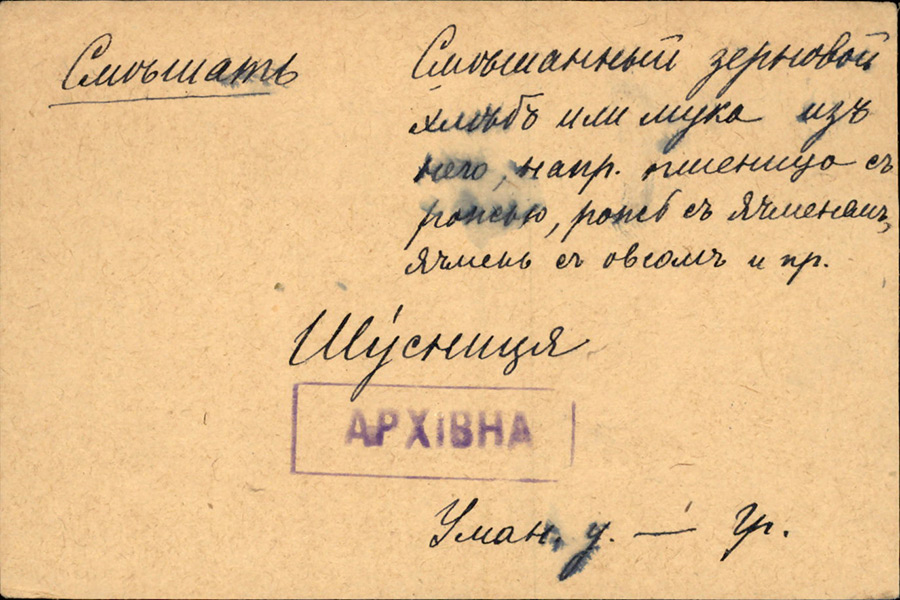 Смѣшать
Смѣшанный зерновой
хлѣбъ или мука изъ
него, напр. пшеница съ
рожью, рожь съ ячменемъ,
ячмень съ овсомъ и пр.
Шу́сниця
АРХІВНА
Уман. у. — Гр.